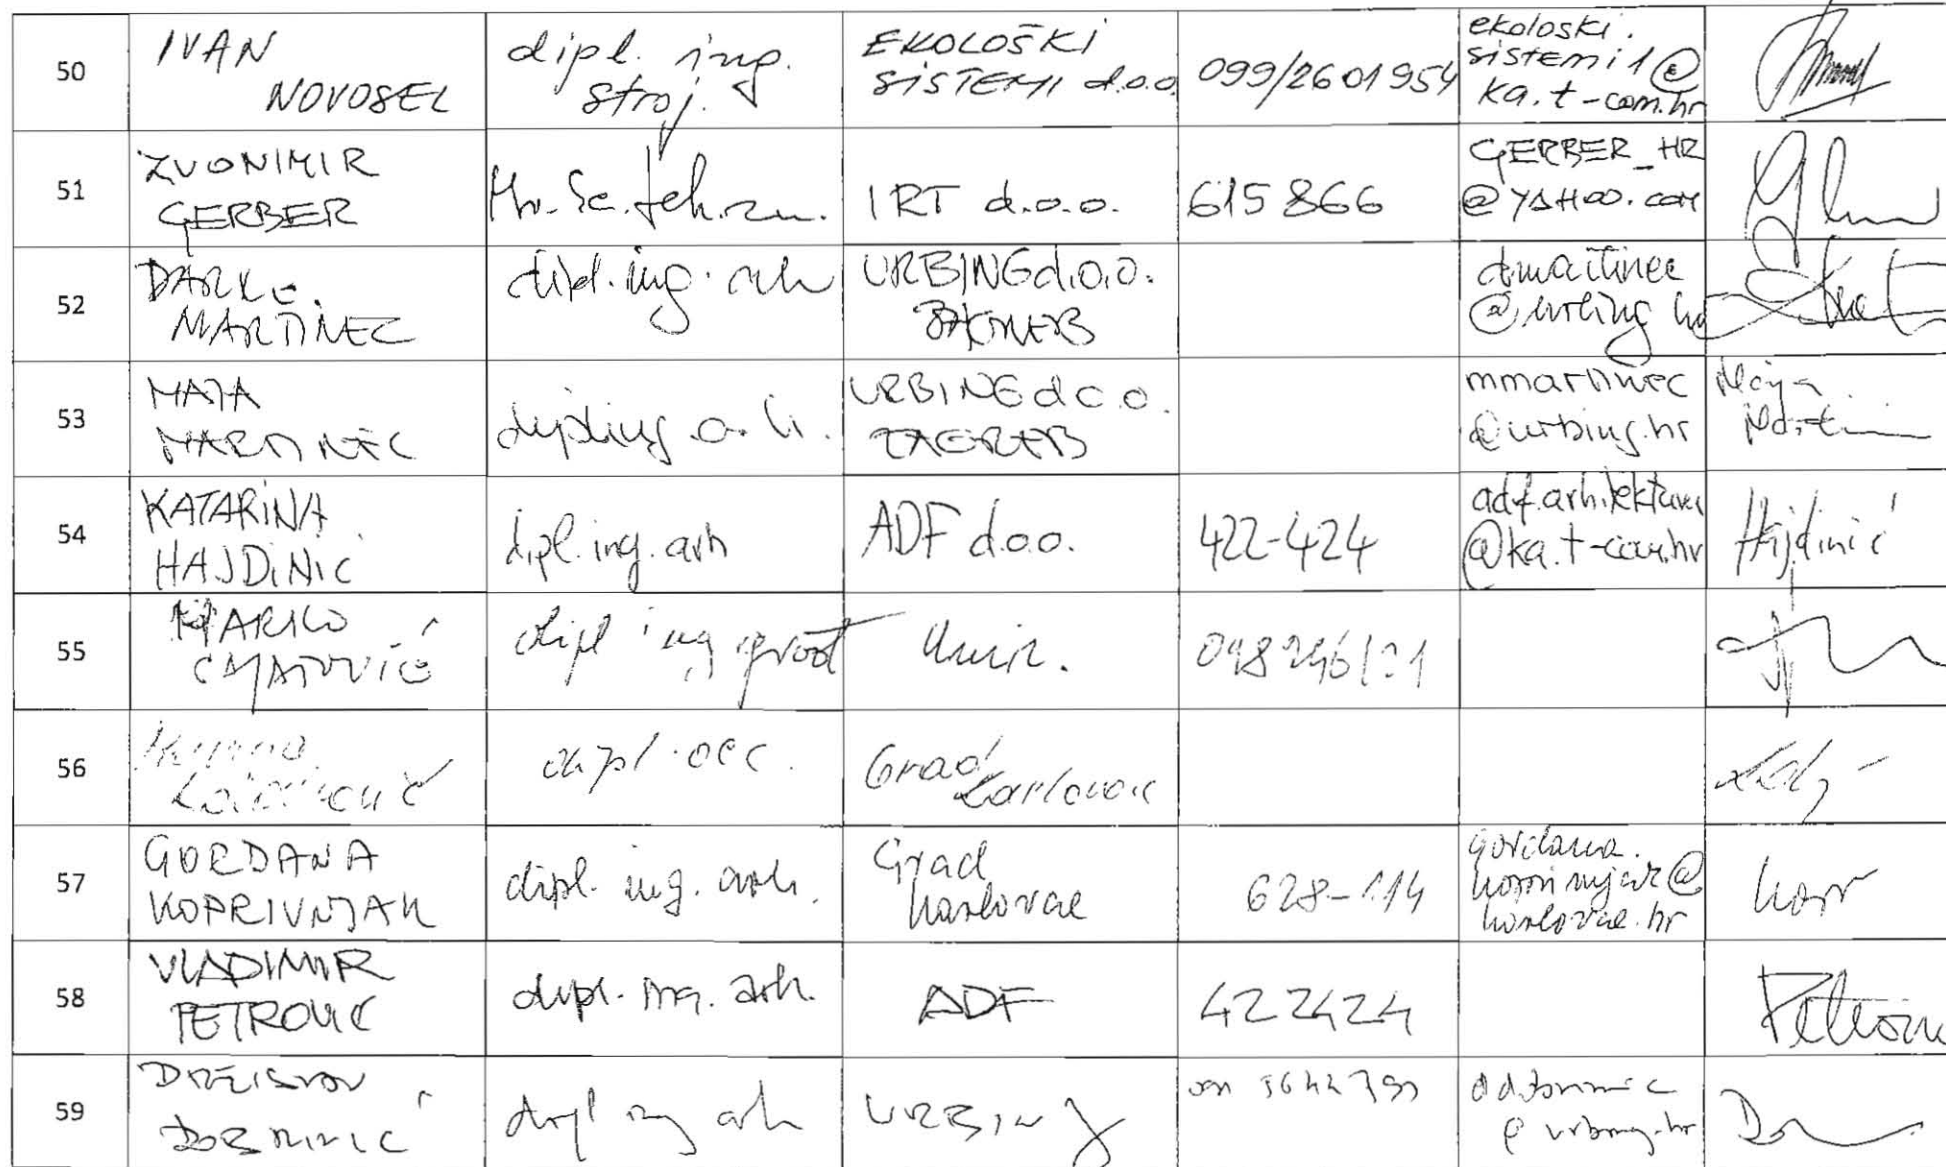 50 IVAN NOVOSEL dipl. ing. stroj. EKOLOŠKI SISTEMI d.o.o. 099/2601954 ekoloski.sistemi1@ka.t-com.hr
51 ZVONIMIR GERBER Mr. Sc. teh. zn. IRT d.o.o. 615 866 GERBER_HR @YAHOO.COM
52 DARKO MARTINEC dipl. ing. arh URBING d.o.o. ZAGREB dmartinec @urbing.hr
53 MAJA MARTINEC dipl.ing.a.h. URBING d.o.o. ZAGREB mmartinec @urbing.hr Maja
54 KATARINA HAJDINIĆ dipl.ing.arh ADF d.o.o. 422-424 adf.arhitektura @ka.t-com.hr Hajdinić
55 MARKO dipl ing građ
56 dipl. oec. Grad Karlovac
57 GORDANA KOPRIVNJAK dipl. ing. arh. Grad Karlovac 628-114 gordana.koprivnjak@karlovac.hr
58 VLADIMIR PETROVIĆ dipl. ing. arh. ADF 422424
59 dipl ing arh URBING